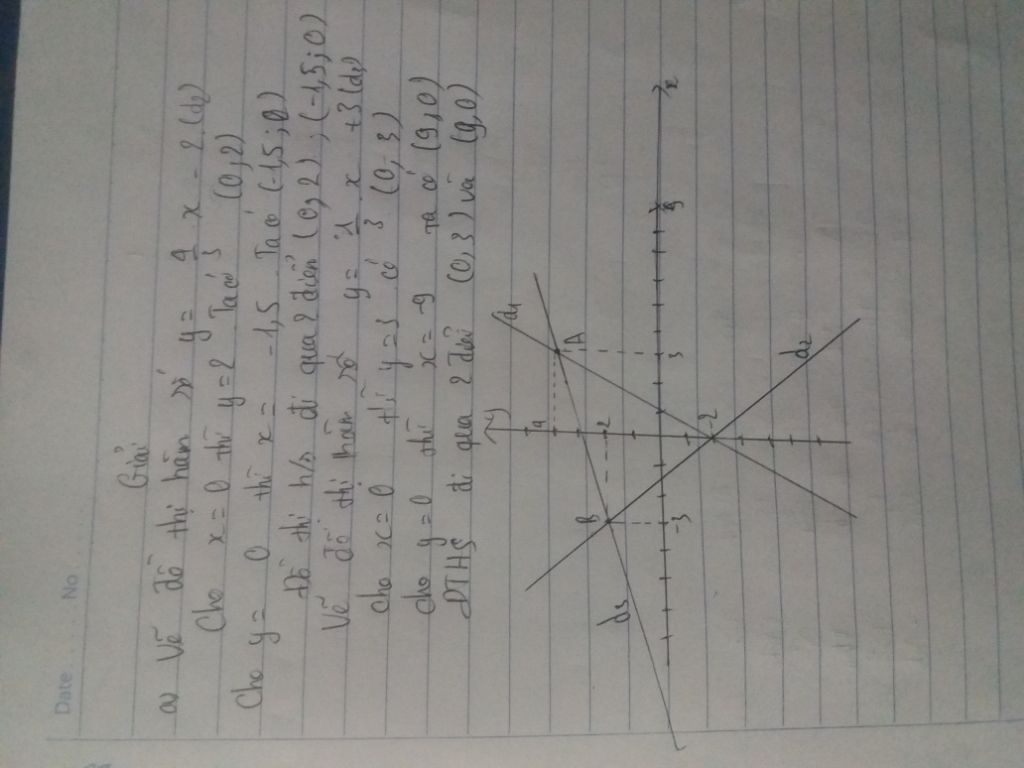 Date ..... No
Giải
a) Vẽ đồ thị hàm số y = 4 x - 2 (d2)
Cho x = 0 thì y = 2 Ta có (0, 2)
3
Cho y = 0 thì x = -1,5 Ta có (-1,5; 0)
Đồ thị h/s đi qua 2 điểm (0, 2), (-1,5; 0)
Vẽ đồ thị hàm số y = 1 x + 3 (d3)
3
Cho x = 0 thì y = 3 có (0, 3)
Cho y = 0 thì x = -9 ta có (9, 0)
ĐTHS đi qua 2 điểm (0, 3) và (9, 0)
y
d1
4
A
B
2
d3
-3
3
9
x
-2
d2